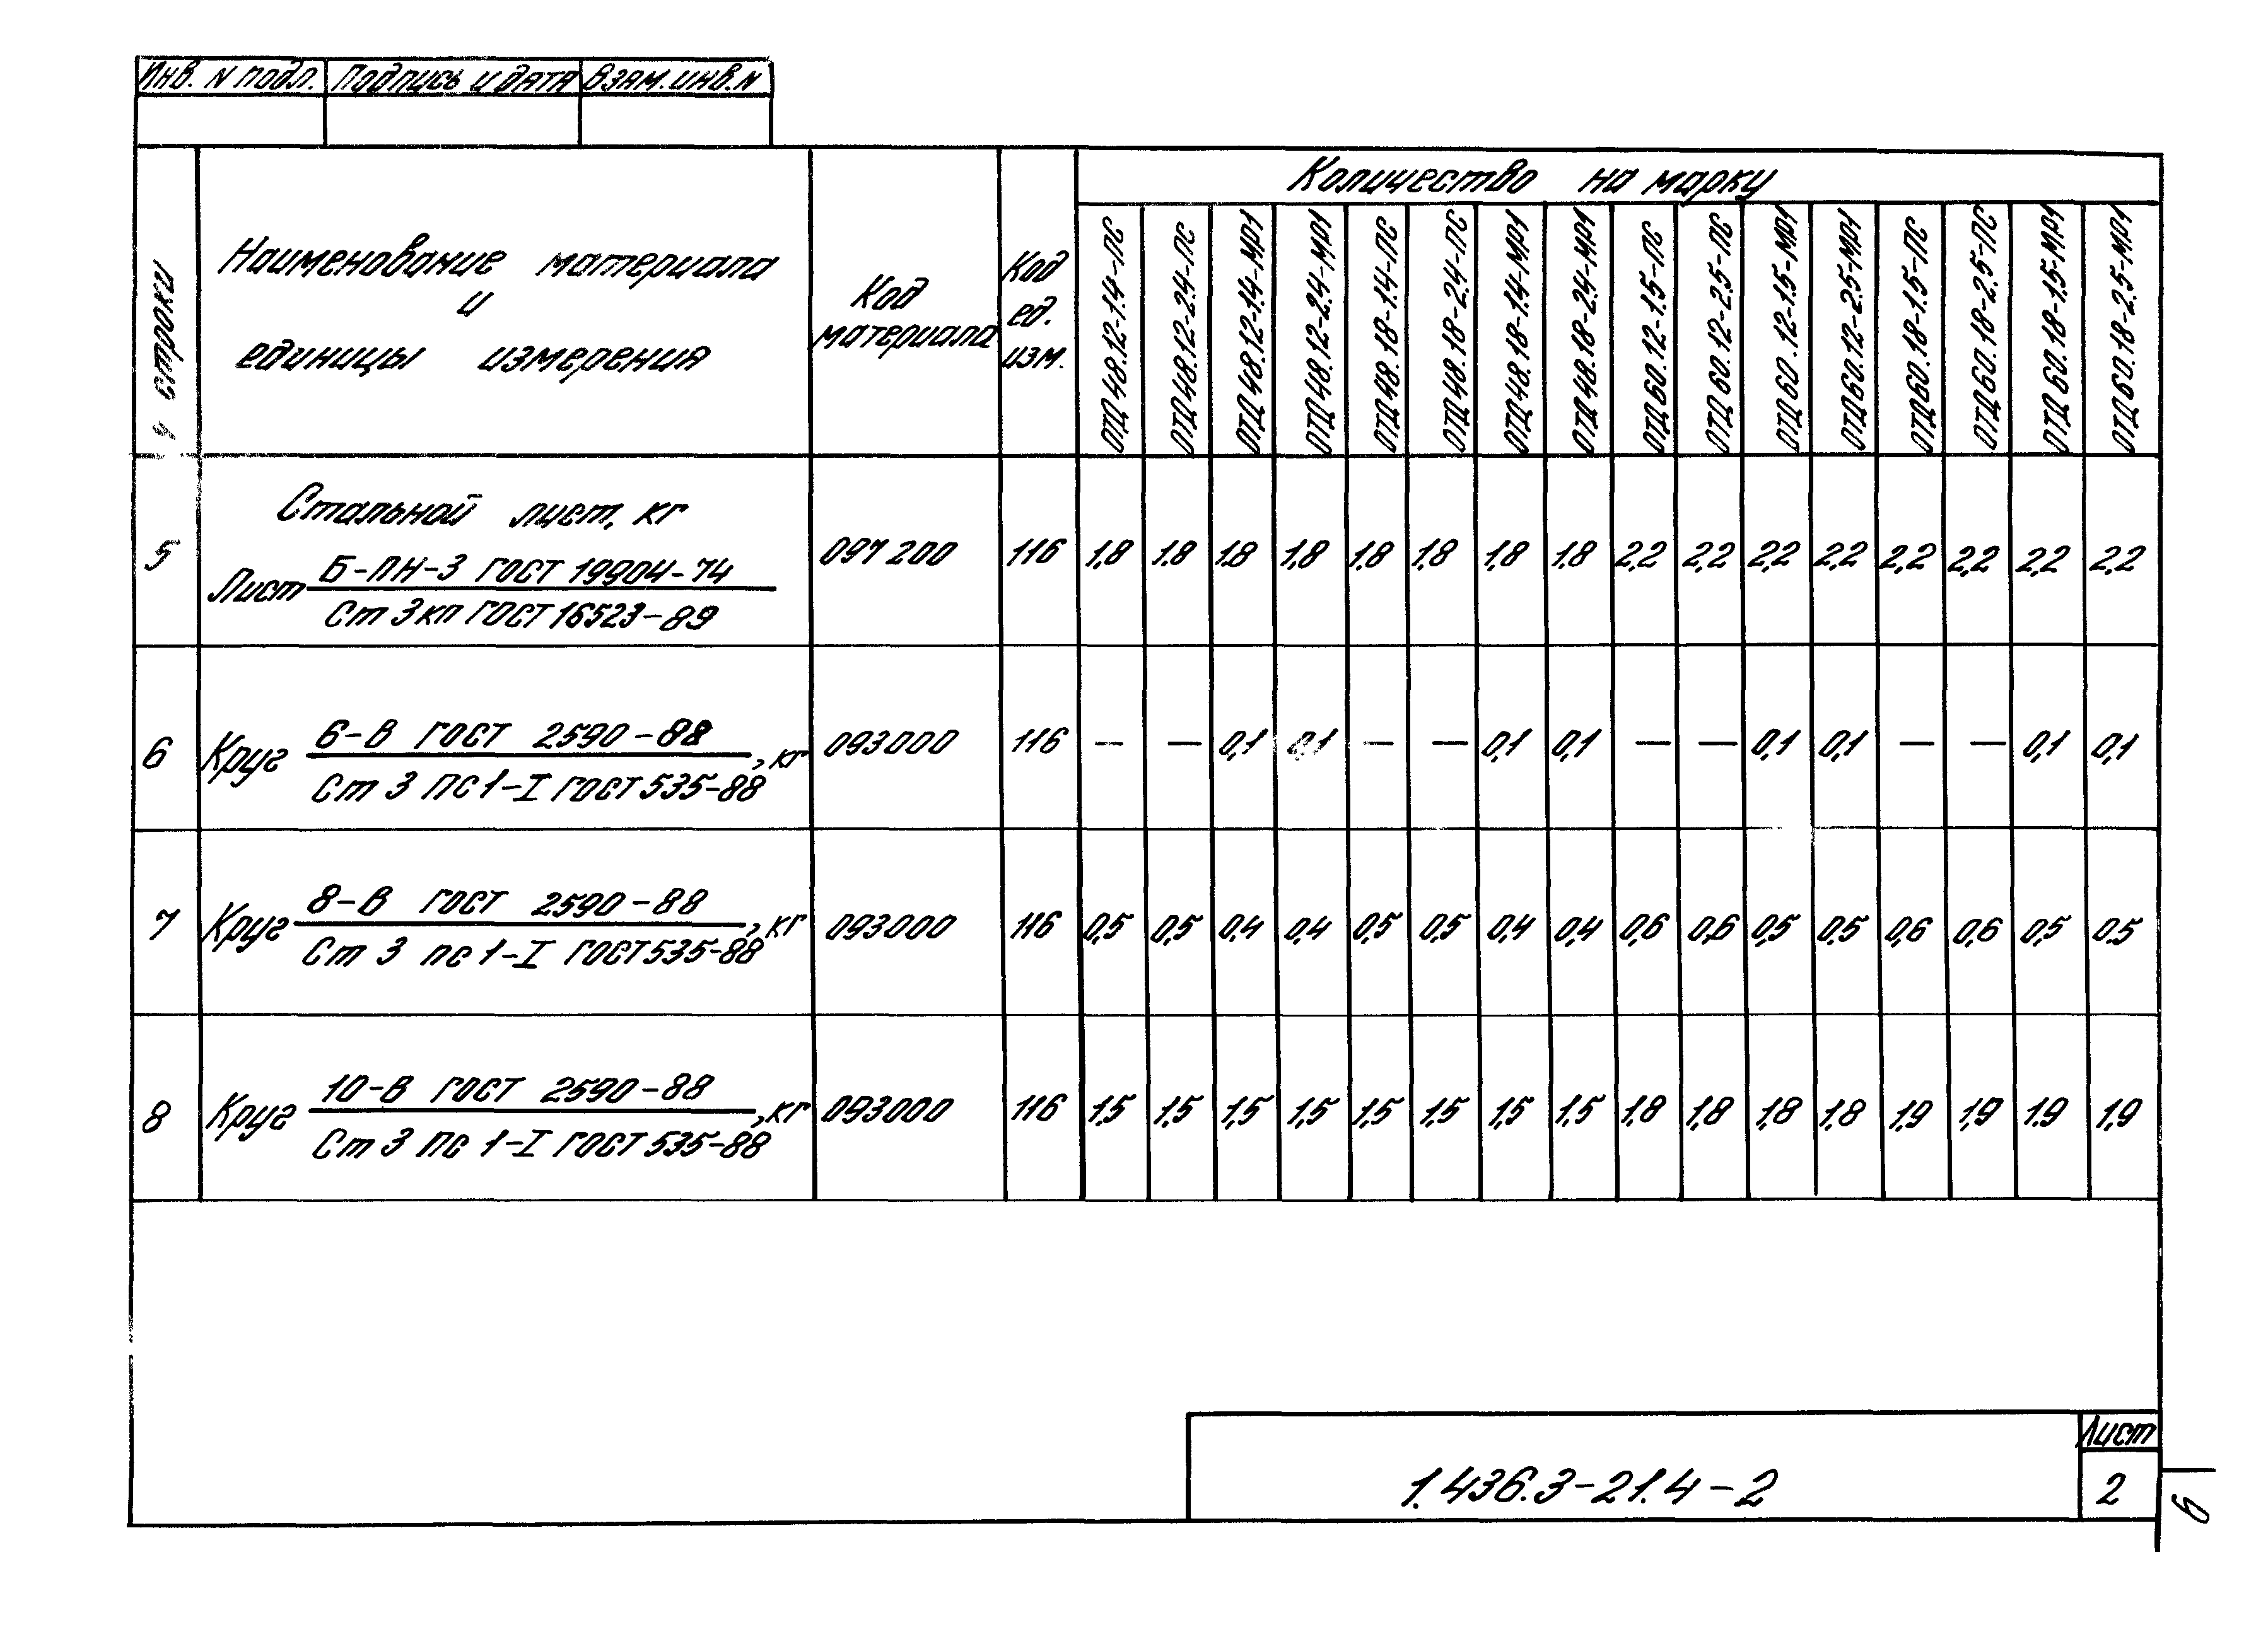 Инв. N подл. Подпись и дата Взам. инв. N
Количество на марку
строки
Наименование материала
и
единицы измерения
Код
материала
Код
ед.
изм.
ОТД 48.12-1.4-ПС
ОТД 48.12-2.4-ПС
ОТД 48.12-1.4-МР1
ОТД 48.12-2.4-МР1
ОТД 48.18-1.4-ПС
ОТД 48.18-2.4-ПС
ОТД 48.18-1.4-МР1
ОТД 48.18-2.4-МР1
ОТД 60.12-1.5-ПС
ОТД 60.12-2.5-ПС
ОТД 60.12-1.5-МР1
ОТД 60.12-2.5-МР1
ОТД 60.18-1.5-ПС
ОТД 60.18-2.5-ПС
ОТД 60.18-1.5-МР1
ОТД 60.18-2.5-МР1
Стальной лист, кг
5 Лист Б-ПН-3 ГОСТ 19904-74 097200 116 1,8 1.8 1.8 1,8 1,8 1,8 1,8 1.8 2,2 2,2 2,2 2,2 2,2 2,2 2,2 2,2
Ст 3 кп ГОСТ 16523-89
6 Круг 6-В ГОСТ 2590-88 , кг 093000 116 — — 0,1 0,1 — — 0,1 0,1 — — 0,1 0,1 — — 0,1 0,1
Ст 3 пс 1-I ГОСТ 535-88
7 Круг 8-В ГОСТ 2590-88 , кг 093000 116 0,5 0,5 0,4 0,4 0,5 0,5 0,4 0,4 0,6 0,6 0,5 0,5 0,6 0,6 0,5 0.5
Ст 3 пс 1-I ГОСТ 535-88
8 Круг 10-В ГОСТ 2590-88 , кг 093000 116 1,5 1,5 1,5 1,5 1,5 1,5 1,5 1,5 1,8 1,8 1,8 1,8 1,9 1,9 1.9 1,9
Ст 3 пс 1-I ГОСТ 535-88
1.436.3-21.4-2
Лист
2